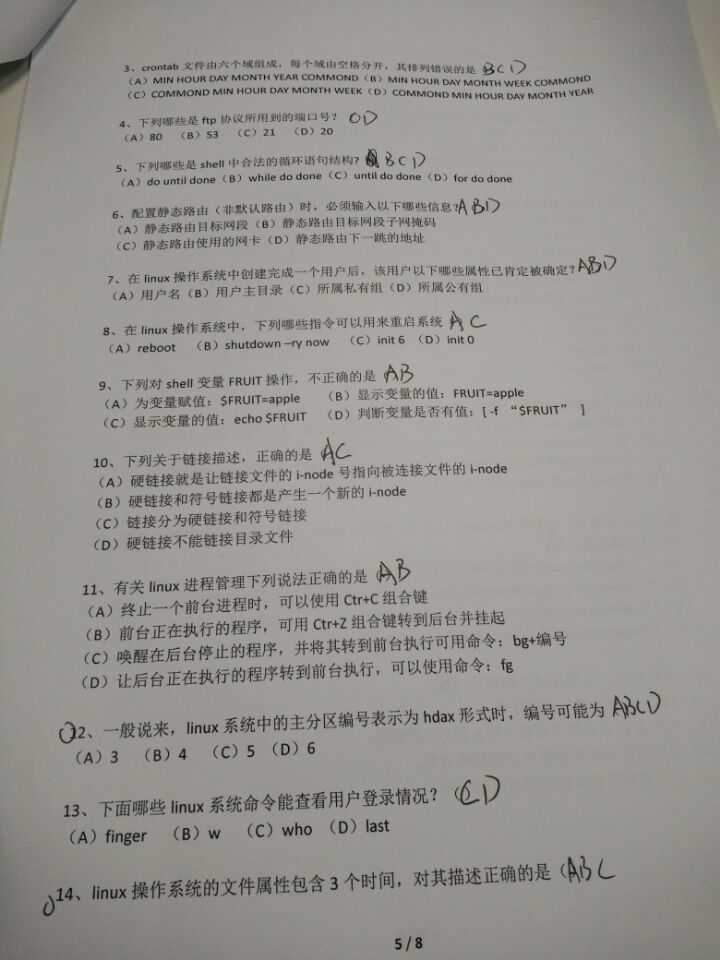 3、crontab 文件由六个域组成，每个域由空格分开，其排列错误的是 BCD
（A）MIN HOUR DAY MONTH YEAR COMMOND（B）MIN HOUR DAY MONTH WEEK COMMOND
（C）COMMOND MIN HOUR DAY MONTH WEEK（D）COMMOND MIN HOUR DAY MONTH YEAR
4、下列哪些是 ftp 协议所用到的端口号？ CD
（A）80 （B）53 （C）21 （D）20
5、下列哪些是 shell 中合法的循环语句结构? BCD
（A）do until done（B）while do done（C）until do done（D）for do done
6、配置静态路由（非默认路由）时，必须输入以下哪些信息? ABD
（A）静态路由目标网段（B）静态路由目标网段子网掩码
（C）静态路由使用的网卡（D）静态路由下一跳的地址
7、在 linux 操作系统中创建完成一个用户后，该用户以下哪些属性已肯定被确定? ABD
（A）用户名（B）用户主目录（C）所属私有组（D）所属公有组
8、在 linux 操作系统中，下列哪些指令可以用来重启系统 AC
（A）reboot （B）shutdown –ry now （C）init 6 （D）init 0
9、下列对 shell 变量 FRUIT 操作，不正确的是 AB
（A）为变量赋值：$FRUIT=apple （B）显示变量的值：FRUIT=apple
（C）显示变量的值：echo $FRUIT （D）判断变量是否有值：[ -f “$FRUIT” ]
10、下列关于链接描述，正确的是 AC
（A）硬链接就是让链接文件的 i-node 号指向被连接文件的 i-node
（B）硬链接和符号链接都是产生一个新的 i-node
（C）链接分为硬链接和符号链接
（D）硬链接不能链接目录文件
11、有关 linux 进程管理下列说法正确的是 AB
（A）终止一个前台进程时，可以使用 Ctr+C 组合键
（B）前台正在执行的程序，可用 Ctr+Z 组合键转到后台并挂起
（C）唤醒在后台停止的程序，并将其转到前台执行可用命令：bg+编号
（D）让后台正在执行的程序转到前台执行，可以使用命令：fg
12、一般说来，linux 系统中的主分区编号表示为 hdax 形式时，编号可能为 ABCD
（A）3 （B）4 （C）5 （D）6
13、下面哪些 linux 系统命令能查看用户登录情况？（CD
（A）finger （B）w （C）who （D）last
14、linux 操作系统的文件属性包含 3 个时间，对其描述正确的是（ABC
5 / 8